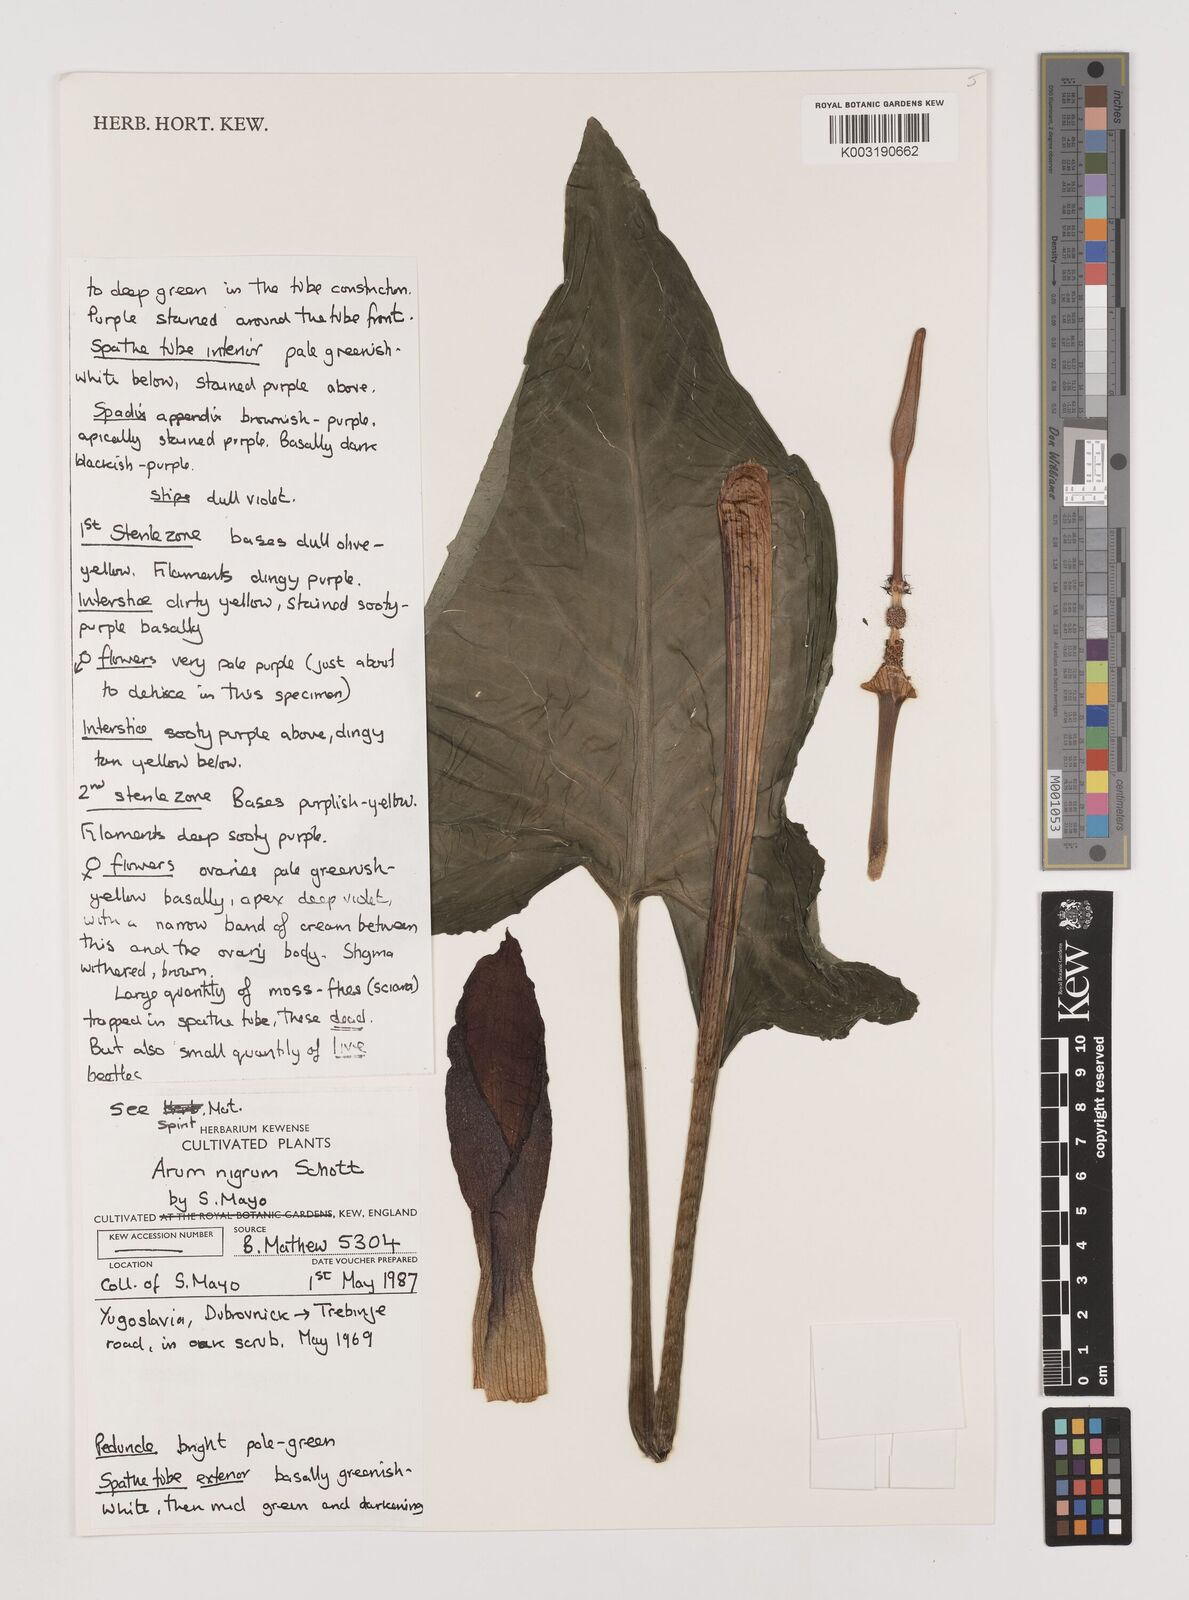 HERB. HORT. KEW.
5
ROYAL BOTANIC GARDENS KEW
K003190662
to deep green in the tube constriction.
Purple stained around the tube front.
Spathe tube interior pale greenish-
white below, stained purple above.
Spadix appendix brownish-purple,
apically stained purple. Basally dark
blackish-purple.
stipe dull violet.
1st Sterile zone bases dull olive-
yellow. Filaments dingy purple.
Interstice dirty yellow, stained sooty-
purple basally
♂ flowers very pale purple (just about
to dehisce in this specimen)
Interstice sooty purple above, dingy
tan yellow below.
2nd sterile zone Bases purplish-yellow.
Filaments deep sooty purple.
♀ flowers ovaries pale greenish-
yellow basally, apex deep violet,
with a narrow band of cream between
this and the ovary body. Stigma
withered, brown.
Large quantity of moss-flies (sciara)
trapped in spathe tube, these dead.
But also small quantity of live
beetles
see Herb. Mat.
Spirit
HERBARIUM KEWENSE
CULTIVATED PLANTS
Arum nigrum Schott
by S. Mayo
CULTIVATED AT THE ROYAL BOTANIC GARDENS, KEW, ENGLAND
KEW ACCESSION NUMBER
SOURCE
B. Mathew 5304
LOCATION
DATE VOUCHER PREPARED
Coll. of S. Mayo 1st May 1987
Yugoslavia, Dubrovnick → Trebinje
road, in oak scrub. May 1969
Peduncle bright pale-green
Spathe tube exterior basally greenish-
white, then mid green and darkening
inches
centimeters
Density
Don Williams
M001053
Royal Botanic Gardens
Kew
copyright reserved
0 1 2 3 4 5 6 7 8 9 10
cm